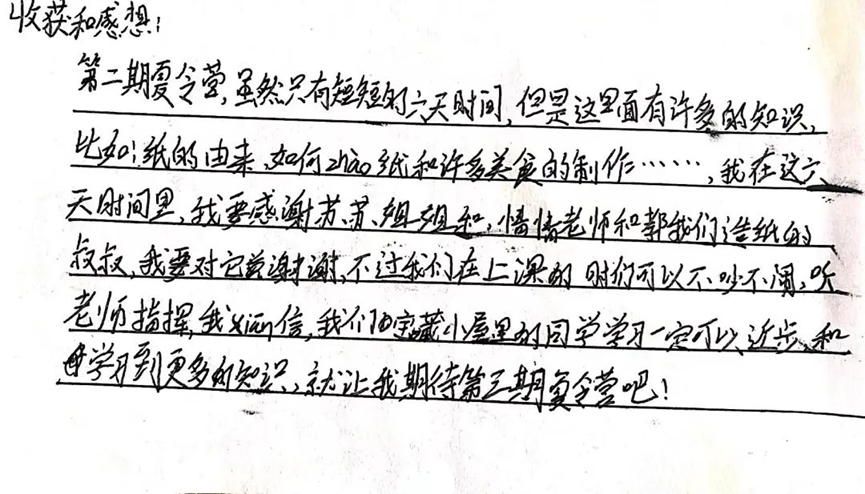 收获和感想：
第二期夏令营,虽然只有短短的六天时间,但是这里面有许多的知识,
比如:纸的由来、如何zhào纸和许多美食的制作……,我在这六
天时间里,我要感谢苏苏姐姐和,情情老师和帮我们造纸的
叔叔,我要对它说谢谢,不过我们在上课的时们可以不吵不闹,听
老师指挥,我xiān信,我们宝藏小屋里的同学学习一定可以近步,和
学习到更多的知识,就让我期待第三期夏令营吧!